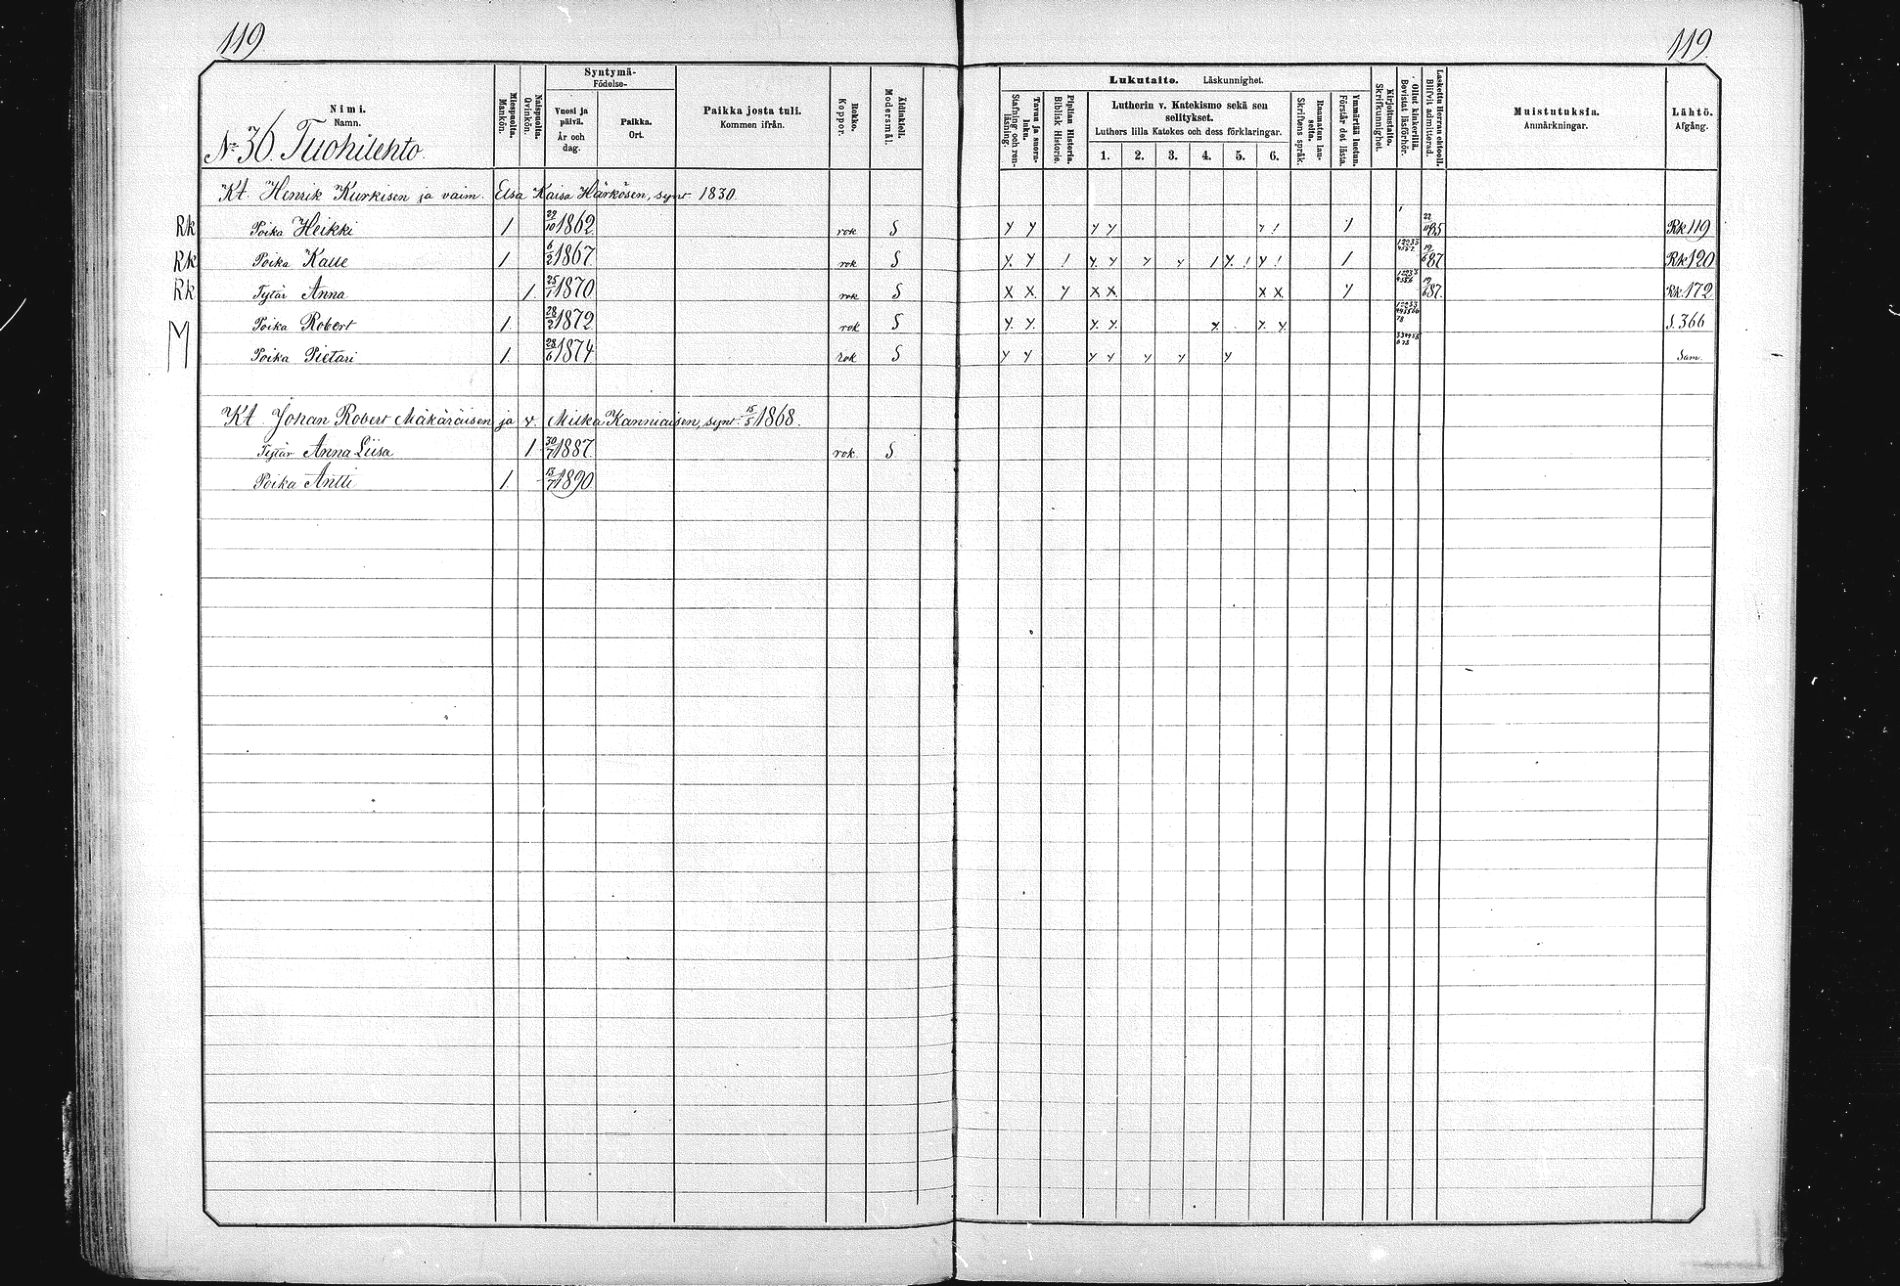 119
119.
Syntymä-
Födelse-
Nimi.
Namn.
Miespuolta.
Mankön.
Naispuolta.
Qvinkön.
Vuosi ja päivä.
År och dag.
Paikka.
Ort.
Paikka josta tuli.
Kommen ifrån.
Rokko.
Koppor.
Äidinkieli.
Modersmål.
Lukutaito. Läskunnighet.
Tavuu ja suoru-luku.
Stafning och ren-läsning.
Piplian Historia.
Biblisk Historie.
Lutherin v. Katekismo sekä sen selitykset.
Luthers lilla Katekes och dess förklaringar.
1. 2. 3. 4. 5. 6.
Raamatun lau-seita.
Skriftens språk.
Ymmärtää luetun.
Förstår det lästa.
Kirjoitustaito.
Skrifkunnighet.
Ollut kinkerillä.
Bevistat läsförhör.
Laskettu Herran ehtool.
Blifvit admitterad.
Muistutuksia.
Anmärkningar.
Lähtö.
Afgång.
No 36. Tuohilehto.
Kt. Henrik Kurkisen ja vaim. Elsa Kaisa Härkösen, synt 1830.
Rk Poika Heikki 1 22/10 1862 rok S 85 Rk 119
Rk Poika Kalle 1 6/2 1867 rok S 87 Rk 120
Rk Tytär Anna 1. 25/1 1870 rok S 87. Rk. 172
Poika Robert 1. 28/2 1872 rok S S. 366
M Poika Pietari 1. 28/6 1874 rok S Sam.
Kt. Johan Robert Mäkäräisen ja v. Milka Kanniaisen, synt. 15/5 1868.
Tytär Anna Liisa 1 30/7 1887. rok S
Poika Antti 1. 13/7 1890.